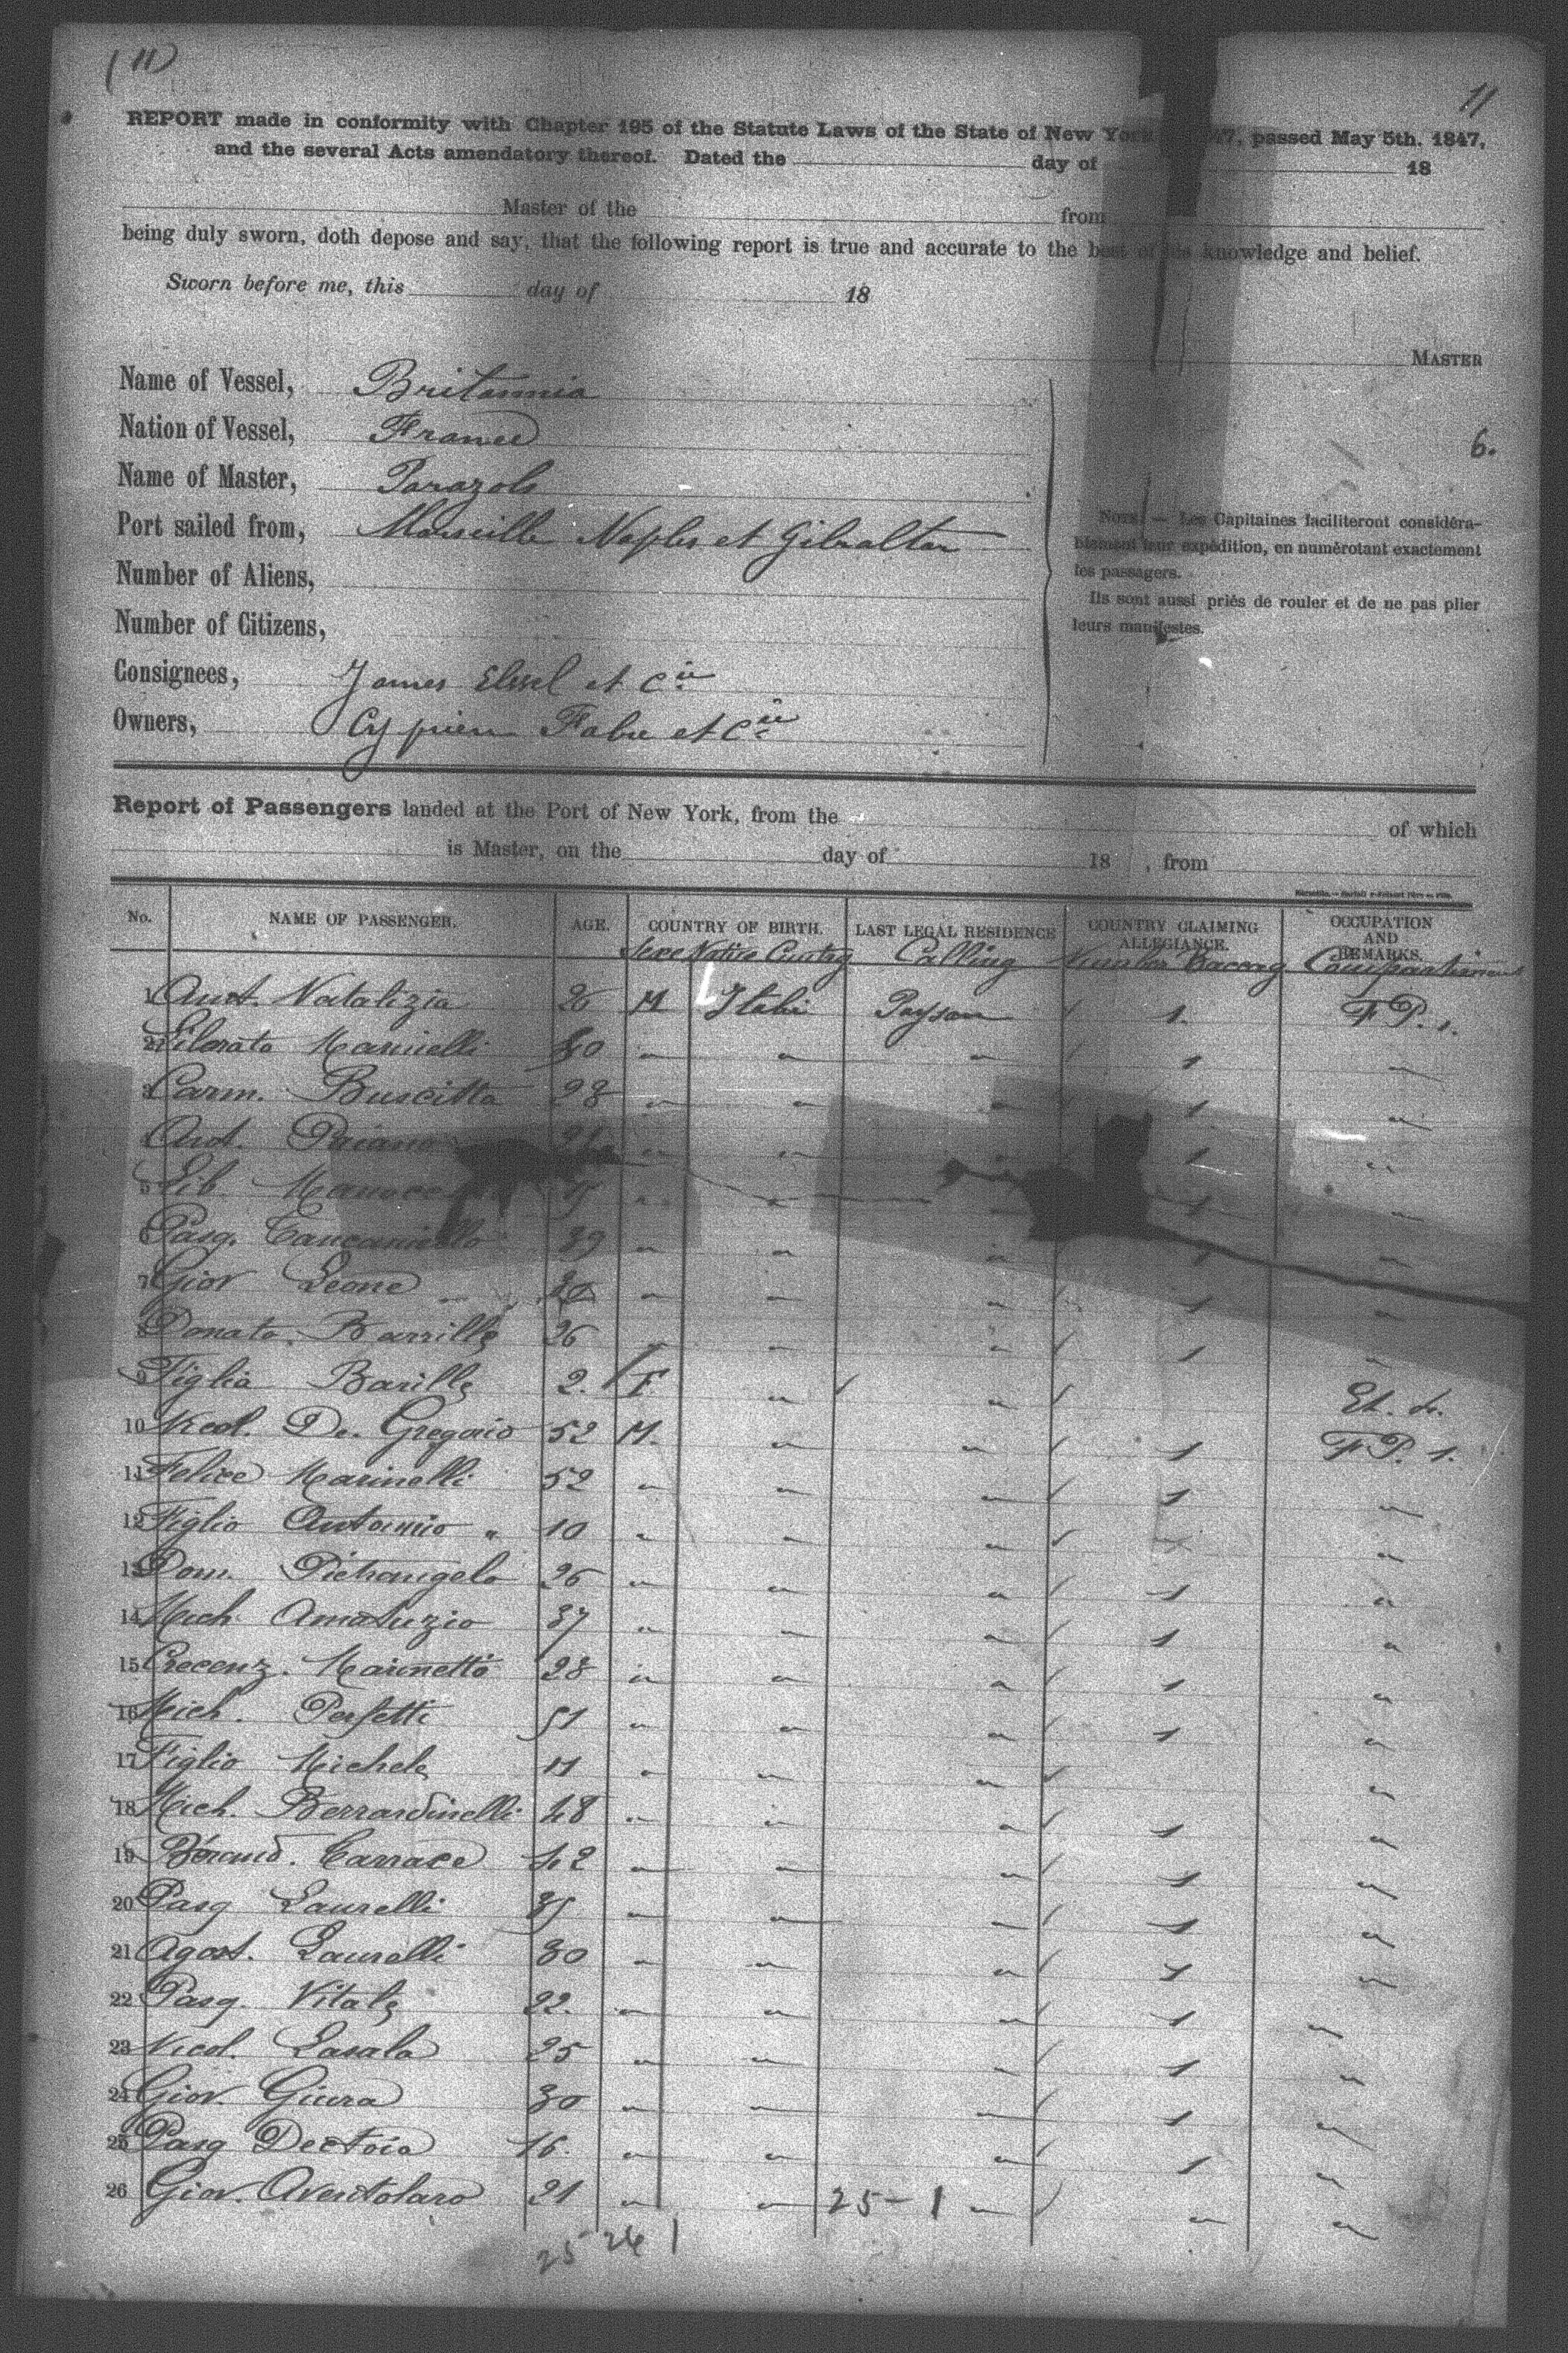 (11)
11
REPORT made in conformity with Chapter 195 of the Statute Laws of the State of New York 47, passed May 5th. 1847,
and the several Acts amendatory thereof. Dated the day of 18
Master of the from
being duly sworn, doth depose and say, that the following report is true and accurate to the best of his knowledge and belief.
Sworn before me, this day of 18
MASTER
Name of Vessel, Britannia
Nation of Vessel, France
6.
Name of Master, Parazols
Port sailed from, Marseille Naples et Gibraltar
NOTE. — Les Capitaines faciliteront considéra-
blement leur expédition, en numérotant exactement
les passagers.
Ils sont aussi priés de rouler et de ne pas plier
leurs manifestes.
Number of Aliens,
Number of Citizens,
Consignees, James Elwel et Cie
Owners, Cyprien Fabre et Cie
Report of Passengers landed at the Port of New York, from the of which
is Master, on the day of 18 , from
No. NAME OF PASSENGER. AGE. COUNTRY OF BIRTH. LAST LEGAL RESIDENCE COUNTRY CLAIMING ALLEGIANCE. OCCUPATION AND REMARKS.
Sexe Native Cuntry Calling Compartiment
1 Ant. Natalizia 26 M Italie Paysan 1. F P. 1.
2 Liberato Marinelli 30 " " " 1 "
3 Carm. Buscitto 28 " " " 1 "
4 And. Paiano " " " 1 "
5 Lib. " " 1 "
6 Pasq. Cancaniello 39 " " " 1 "
7 Gior Leone " " " 1 "
8 Donato Barrille 26 " " " 1 "
9 Figlia Barille 2. F " " Et. L.
10 Nicol. De. Gregorio 52 M. " " 1 F P. 1.
11 Felice Marinelli 52 " " " 1 "
12 Figlio Antonio " 10 " " " "
13 Dom. Pietrangelo 26 " " " 1 "
14 Mich. Amatuzio 37 " " " 1 "
15 Crecenz. Marinetto 28 " " " 1 "
16 Mich. Perfetti 51 " " " 1 "
17 Figlio Michele 11 " " " "
18 Mich. Berrardinelli 48 " " " 1 "
19 Carrace 42 " " " 1 "
20 Pasq Laurelli 35 " " " 1 "
21 Agost. Laurelli 30 " " " 1 "
22 Pasq. Vitale 22. " " " 1 "
23 Nicol. Lasala 25 " " " 1 "
24 Gior. Giura 30 " " " 1 "
25 Pasq 16. " " " 1 "
26 Gior. Aventolaro 21 " " 25-1 " " "
25 24 1